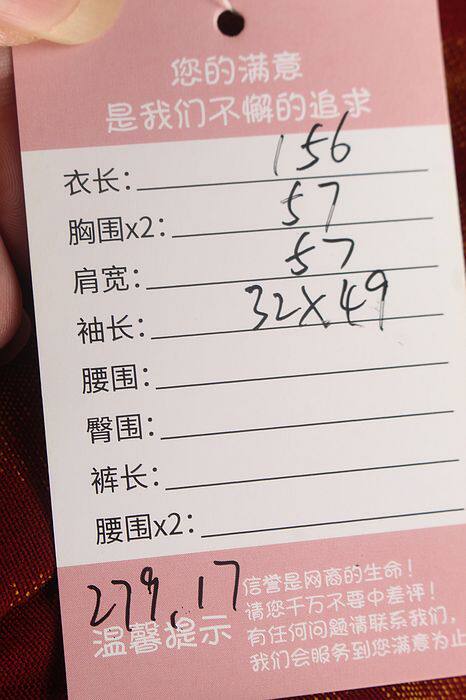 您的满意
是我们不懈的追求
衣长：156
胸围x2：57
肩宽：57
袖长：32X49
腰围：
臀围：
裤长：
腰围x2：
279,17
温馨提示
信誉是网商的生命！
请您千万不要中差评！
有任何问题请联系我们，
我们会服务到您满意为止